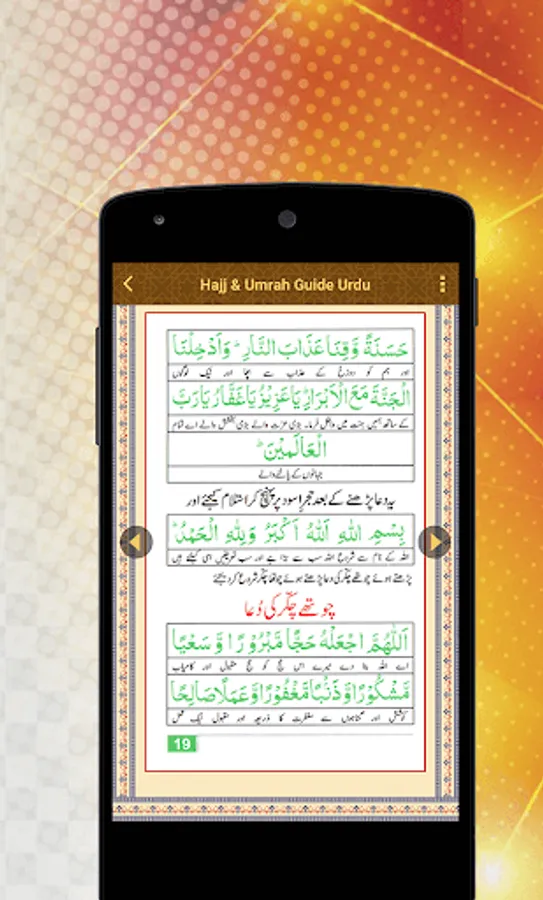 Hajj & Umrah Guide Urdu
حَسَنَةً وَّقِنَا عَذَابَ النَّارِ ۔ وَاَدْخِلْنَا
اور ہم کو دوزخ کے عذاب سے بچا اور نیک لوگوں
الْجَنَّةَ مَعَ الْاَبْرَارِ یَا عَزِیْزُ یَا غَفَّارُ یَا رَبَّ
کے ساتھ ہمیں جنت میں داخل فرما۔ بڑی عزت والے بڑی بخشش والے اے تمام
الْعَالَمِیْنَ ؕ
جہانوں کے پالنے والے
یہ دعا پڑھنے کے بعد حجرِ اسود پر پہنچ کر استلام کیجئے اور
بِسْمِ اللهِ اَللهُ اَكْبَرُ وَلِلهِ الْحَمْدُ ؕ
اللہ کے نام سے شروع اللہ سب سے بڑا ہے اور سب تعریفیں اسی کیلئے ہیں
پڑھتے ہوئے چوتھے چکّر کی دعا پڑھتے ہوئے چوتھا چکّر شروع کر دیجئے
چوتھے چکّر کی دُعا
اَللّٰهُمَّ اجْعَلْهُ حَجًّا مَّبْرُوْرًا وَّسَعْیًا
اے اللہ بنا دے میرے اس حج کو حج مقبول اور کامیاب
مَّشْكُوْرًا وَّذَنْۢبًا مَّغْفُوْرًا وَّعَمَلًا صَالِحًا
کوشش اور گناہوں سے مغفرت کا ذریعہ اور مقبول نیک عمل
19